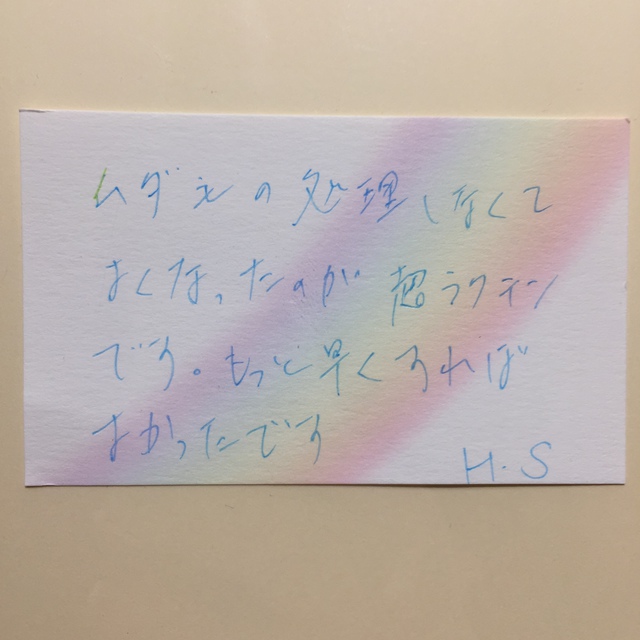 ムダ毛の処理しなくて
よくなったのが超ラクチン
です。もっと早くすれば
よかったです
H.S